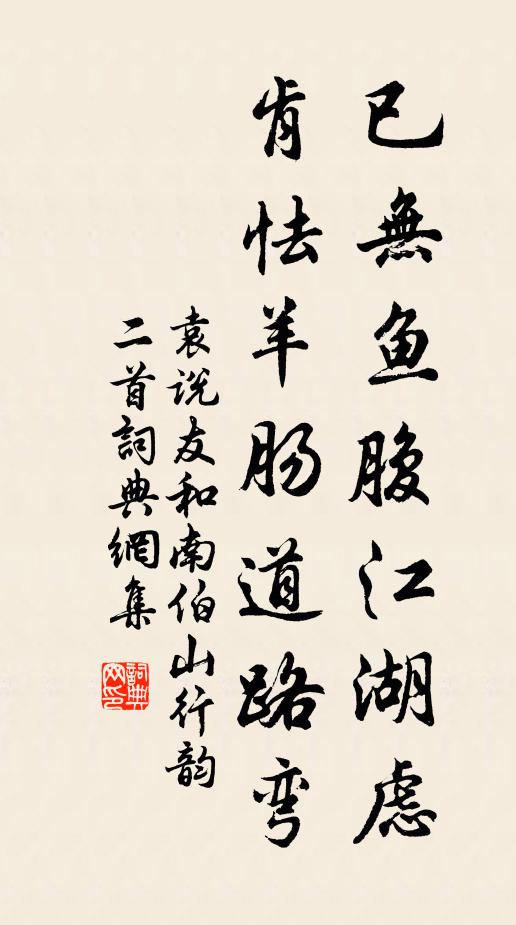 已無鱼腹江湖慮
肯怯羊肠道路弯
袁说友和南伯山行韵
二首詞典網集
詞典網印